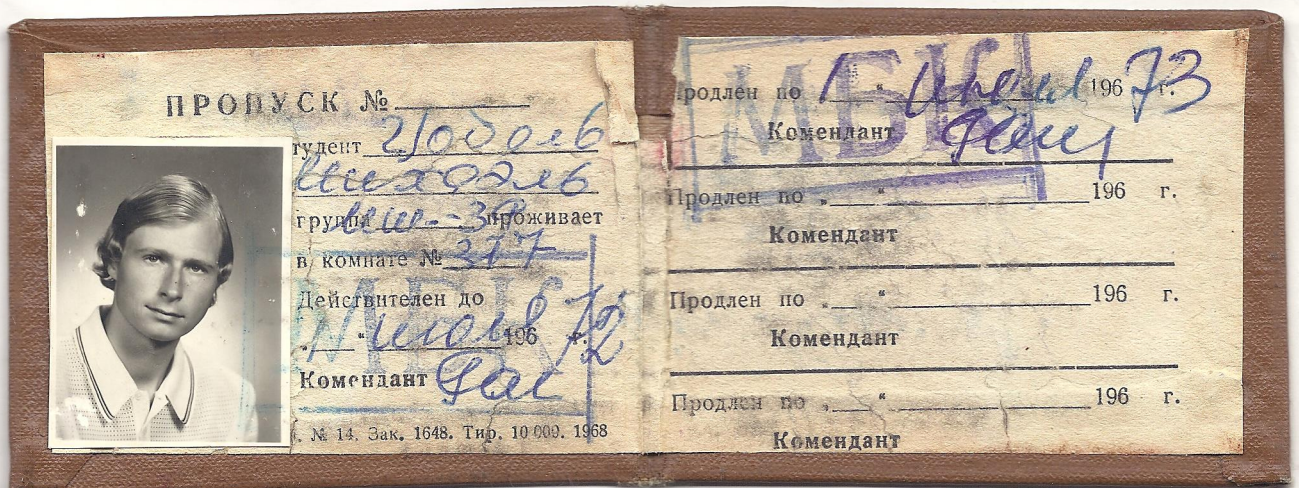 ПРОПУСК №
тудент Цобель
Михаэль
группа мш-39 проживает
в комнате № 317
Действителен до
„1" июля 196 72 г.
Комендант
. № 14. Зак. 1648. Тир. 10 000. 1968
МБК
Продлен по 1 " июля 196 73 г.
Комендант
Продлен по „ " 196 г.
Комендант
Продлен по „ " 196 г.
Комендант
Продлен по „ " 196 г.
Комендант